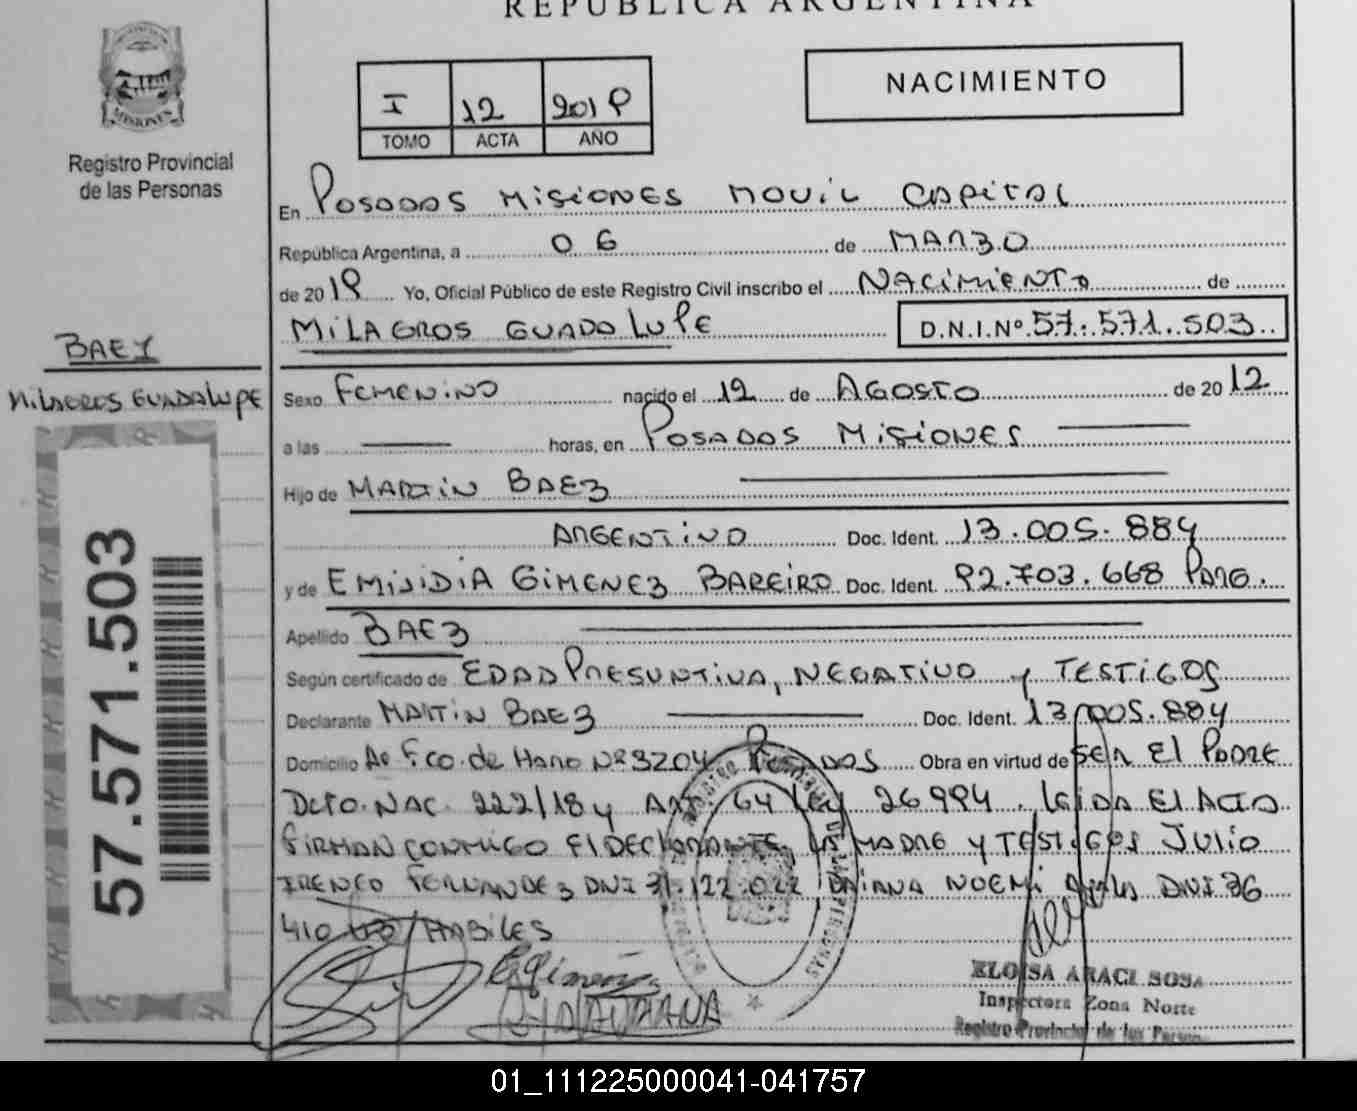 REPÚBLICA ARGENTINA
MISIONES
Registro Provincial
de las Personas
I 12 2019
TOMO ACTA AÑO
NACIMIENTO
En POSADAS MISIONES MOVIL CAPITAL
República Argentina, a 06 de MARZO
de 2019 Yo, Oficial Público de este Registro Civil inscribo el NACIMIENTO de
MILAGROS GUADALUPE D.N.I.Nº 57.571.503
BAEZ
MILAGROS GUADALUPE
Sexo FEMENINO nacido el 12 de AGOSTO de 2012
a las horas, en POSADAS MISIONES
Hijo de MARTIN BAEZ
ARGENTINO Doc. Ident. 13.005.884
y de EMISIDIA GIMENEZ BAREIRO Doc. Ident. 92.703.668 PARG.
Apellido BAEZ
Según certificado de EDAD PRESUNTIVA, NEGATIVO y TESTIGOS
Declarante MARTIN BAEZ Doc. Ident. 13.005.884
Domicilio Av Fco. de Haro Nº 3204 POSADAS Obra en virtud de SER El PADRE
DCTO. NAC. 222/18 y ART. 64 Ley 26994. LEIDA El ACTA
FIRMAN CONMIGO El DECLARANTE, LA MADRE y TESTIGOS JULIO
IRENEO FERNANDEZ DNI 31.122.022 DAIANA NOEMI DNI 36
410 HABILES
57.571.503
ELOISA ARACI SOSA
Inspectora Zona Norte
Registro Provincial de las Personas
01_111225000041-041757